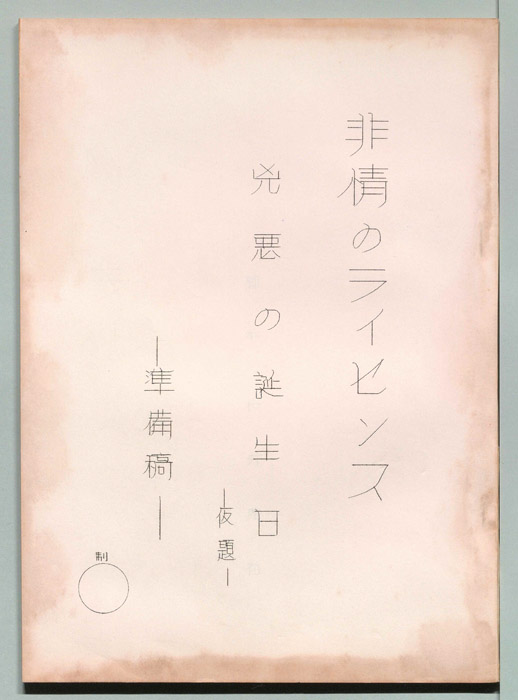 非情のライセンス
兇悪の誕生日
―仮題―
―準備稿―
制